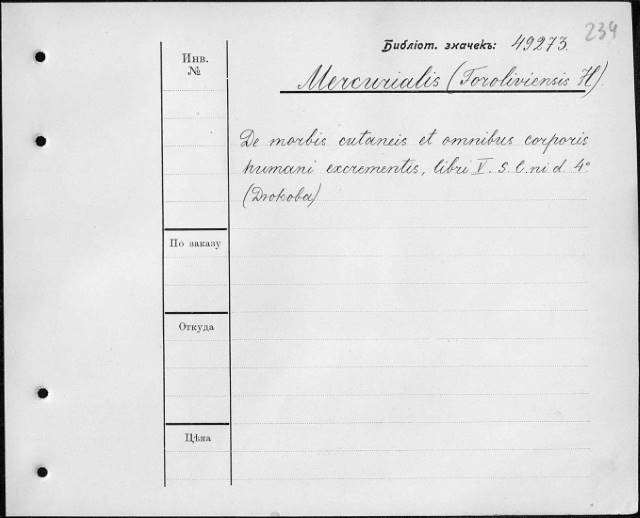 234
Библіот. значекъ: 49273.
Инв.
№
Mercurialis (Foroliviensis H)
De morbis cutaneis et omnibus corporis
humani excrementis, libri V. S. l. ni d. 4°
(Дюкова)
По заказу
Откуда
Цѣна